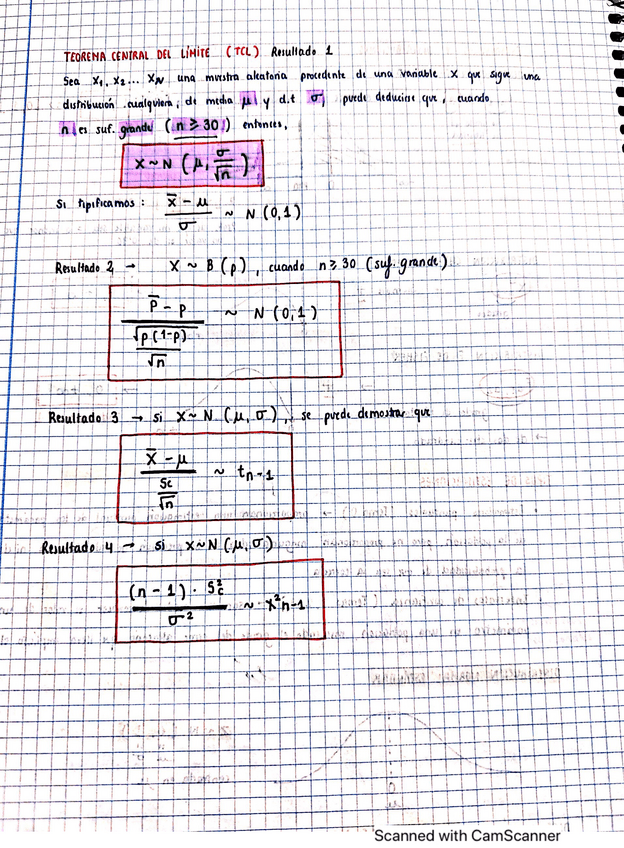 TEOREMA CENTRAL DEL LÍMITE (TCL) Resultado 1
Sea X₁, X₂... X_N una muestra aleatoria procedente de una variable X que sigue una
distribución cualquiera, de media μ y d.t σ, puede deducirse que, cuando
n es suf. grande (n ≥ 30) entonces,
X ~ N (μ, σ/√n)
Si tipificamos: (X̄ - μ)/σ ~ N (0,1)
Resultado 2 → X ~ B (p), cuando n ≥ 30 (suf. grande)
(p̄ - p)/(√(p(1-p))/√n) ~ N (0,1)
Resultado 3 → si X ~ N (μ, σ), se puede demostrar que
(X̄ - μ)/(Sc/√n) ~ t n-1
Resultado 4 → si X ~ N (μ, σ)
((n - 1) · S²c)/σ² ~ x² n-1
Scanned with CamScanner